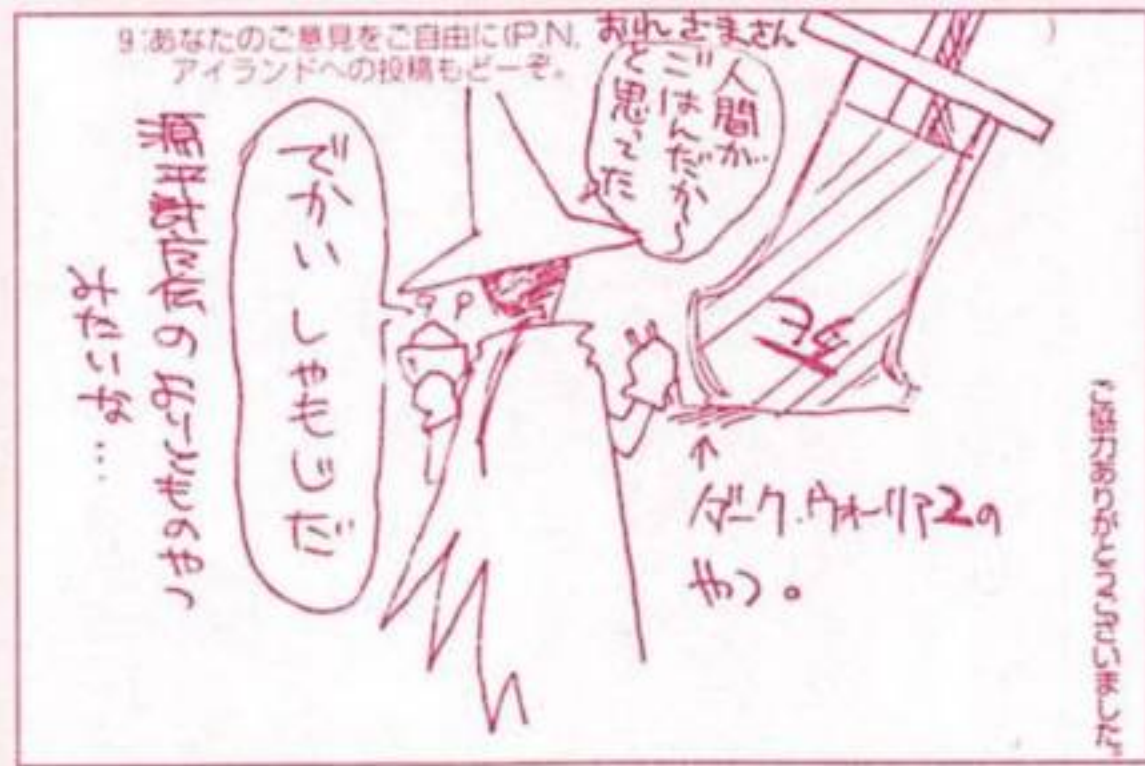 9:あなたのご意見をご自由に(P.N. おれさまさん )
アイランドへの投稿もどーぞ。
人間が
ごはんだから
と思ってた
でかいしゃもじだ
みたいな…
ダーク・ウォーリア2の
やつ。
ご協力ありがとうございました。